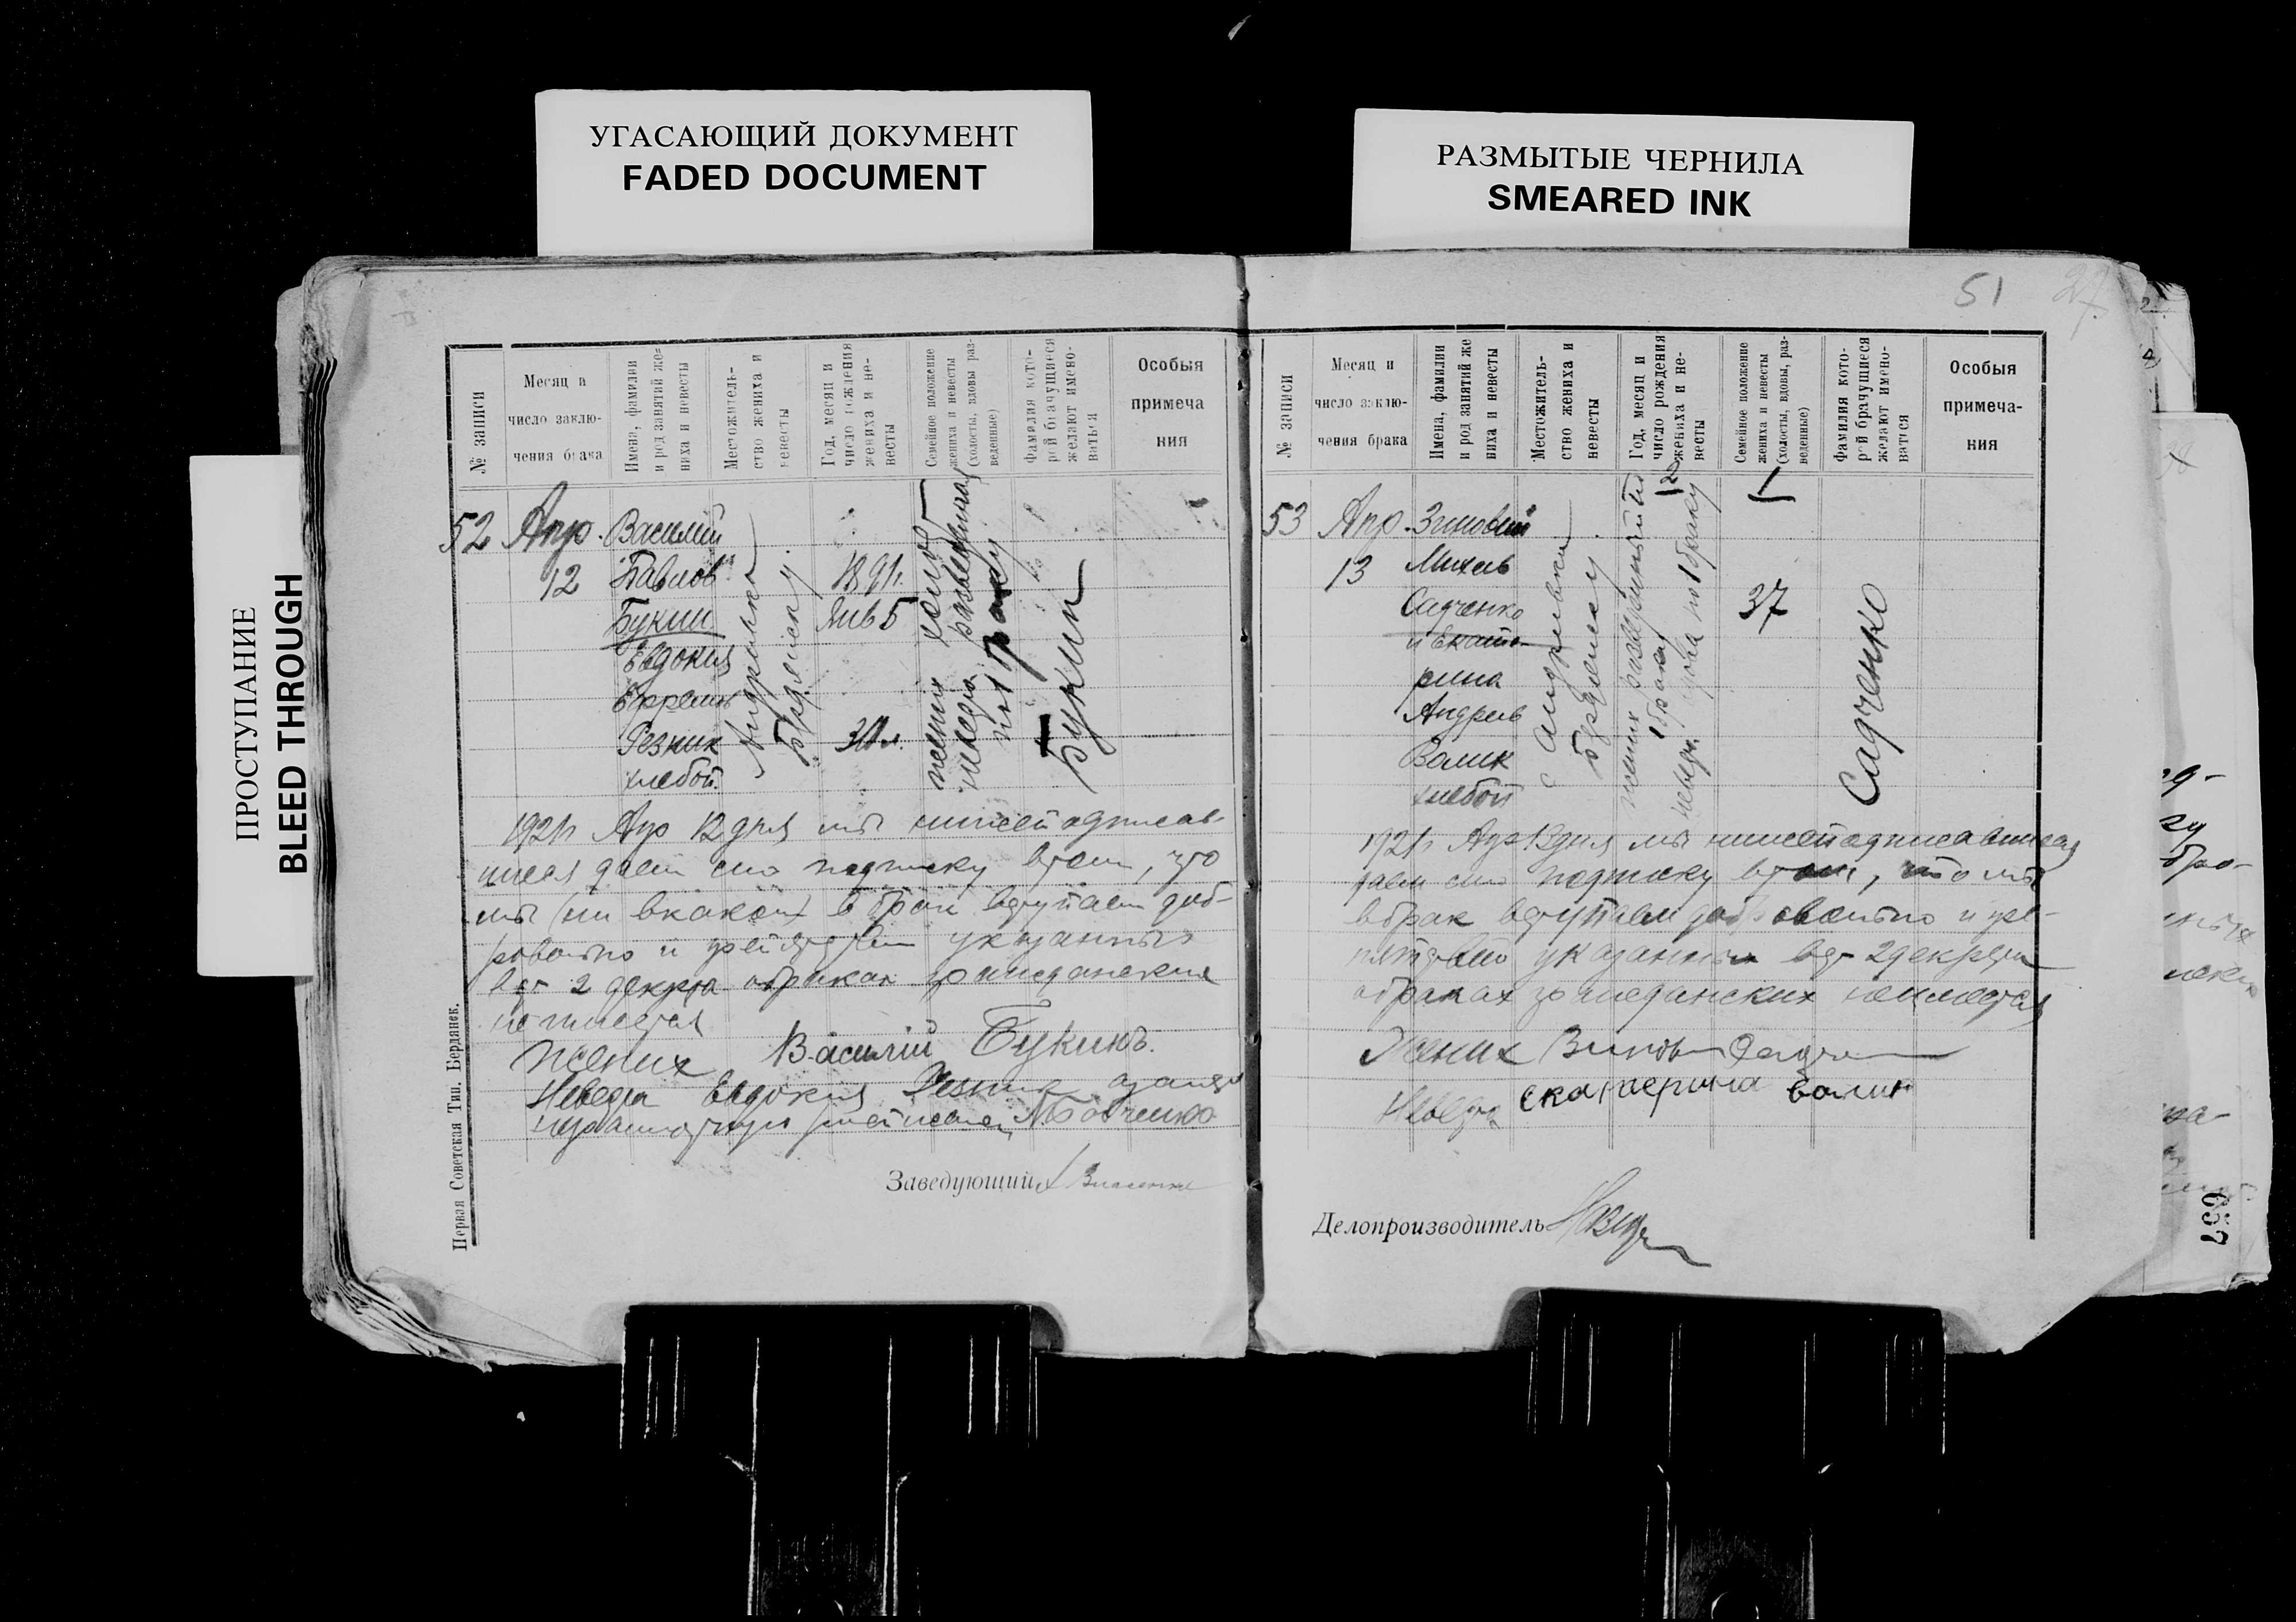 УГАСАЮЩИЙ ДОКУМЕНТ
FADED DOCUMENT
РАЗМЫТЫЕ ЧЕРНИЛА
SMEARED INK
ПРОСТУПАНИЕ
BLEED THROUGH
№ записи
Месяц и
число заклю-
чения брака
Имена, фамилии
и род занятий же-
ниха и невесты
Местожитель-
ство жениха и
невесты
Год, месяц и
число рождения
жениха и не-
весты
Семейное положение
жениха и невесты
(холосты, вдовы раз-
веденные)
Фамилия кото-
рой брачущиеся
желают имено-
ваться
Особыя
примеча
ния
52
Апр.
12
Василий
Павлов
Букин
Евдокия
Ефрем
Резник
хлебоп.
Андровка
Бердянск. у.
1891г.
Янв 5
30 л.
жених холост
невеста разведенная
Букин
1921г Апр 12 дня мы нижеподписав-
шиеся даем сию подписку в том, что
мы в брак вступаем доб-
ровольно и препятствий указанных
в ст 2 декрета о браках гражданских
не имеется
Жених Василий Букинъ.
Невеста Евдокия Резник а за нея
неграмотную
Заведующий
Первая Советская Тип. Бердянек.
51
27
№ записи
Месяц и
число заклю-
чения брака
Имена, фамилии
и род занятий же
ниха и невесты
Местожитель-
ство жениха и
невесты
Год, месяц и
число рождения
жениха и не-
весты
Семейное положение
жениха и невесты
(холосты, вдовы, раз-
веденные)
Фамилия кото-
рой брачущиеся
желают имено-
ватися
Особыя
примеча-
ния
53
Апр.
13
Зиновий
Михаев
Садченко
и Екате-
рина
Андреев
Волик
хлебоп
с Андровка
Бердянск у.
жених разведенный
1 брака
невеста вдова по 1 браку
37
Садченко
1921г Апр 13 дня мы нижеподписавшиеся
даем сию подписку в том, что мы
в брак вступаем добровольно и пре-
пятствий указанных в ст 2 декрета
о браках гражданских не имеется
Жених
Невеста Екатерина Волик
Делопроизводитель
697